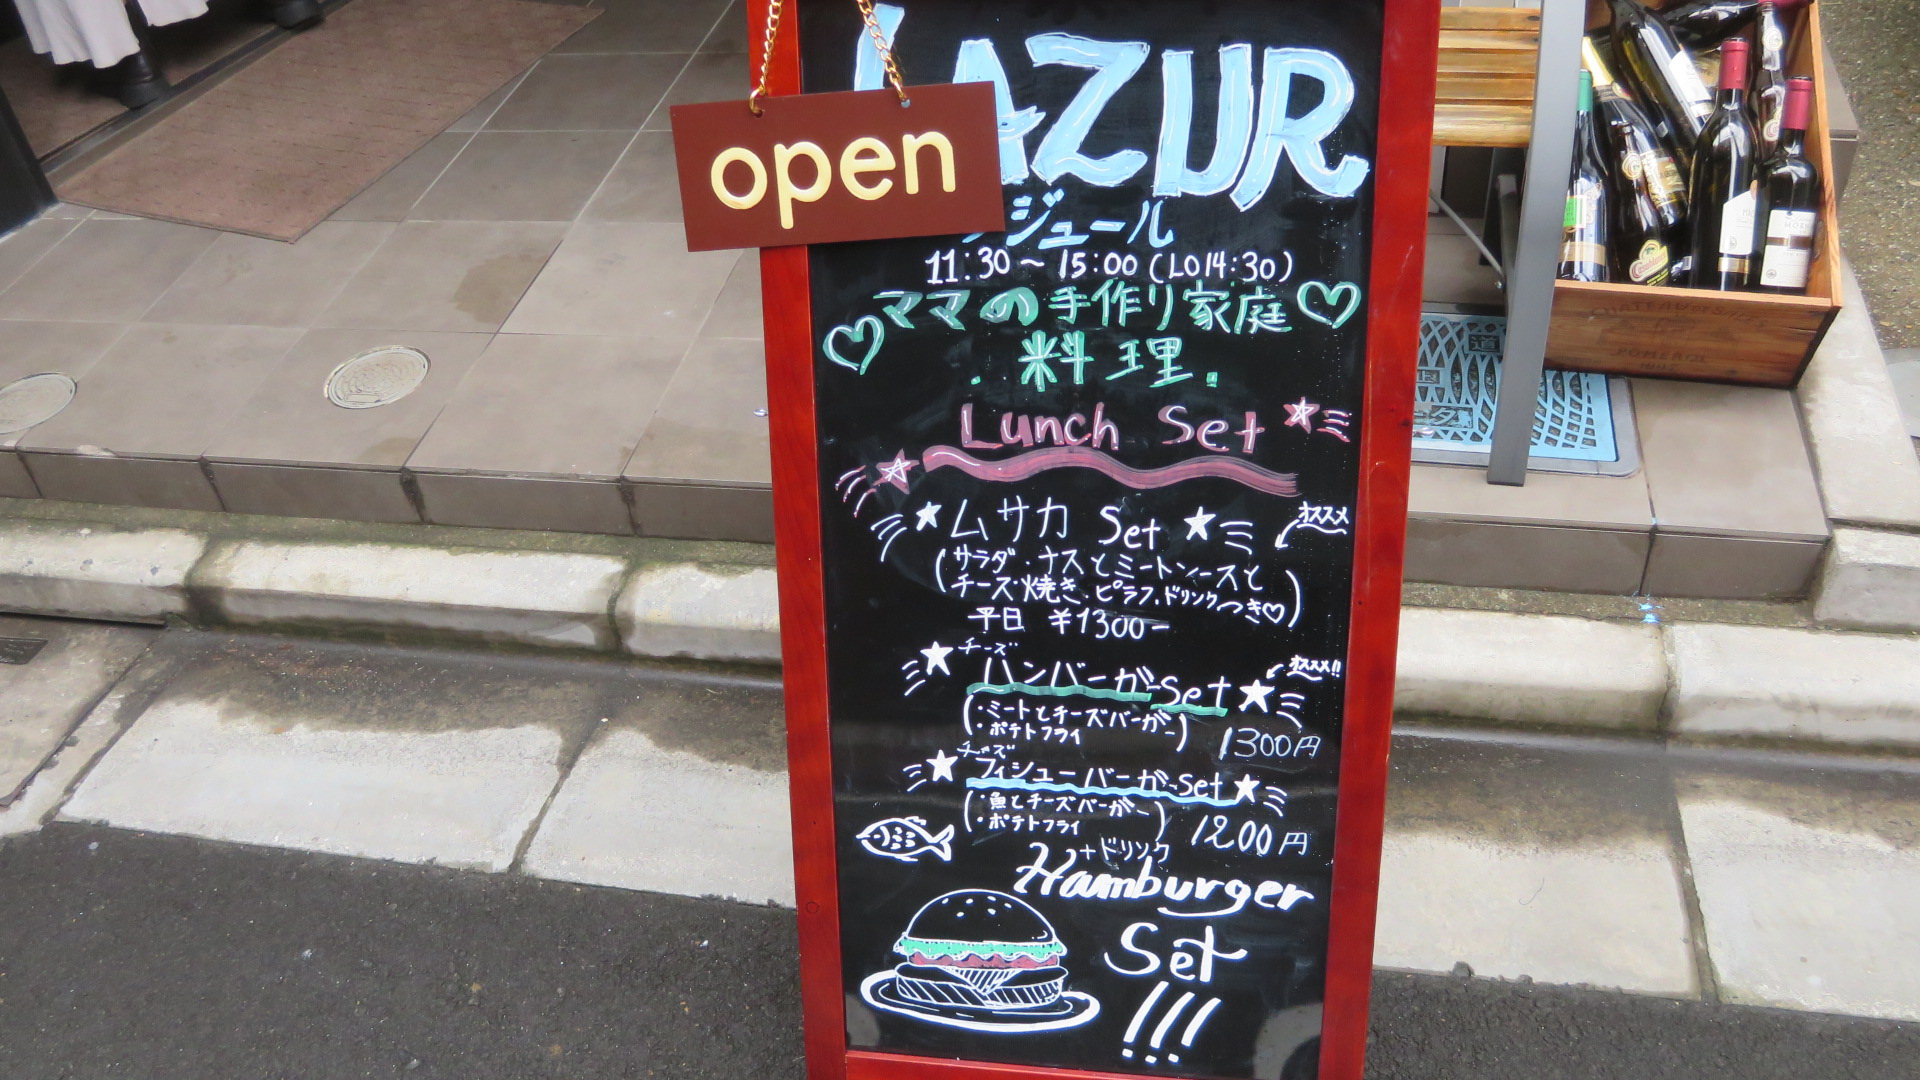 LAZUR
open
ジュール
11:30～15:00(LO14:30)
ママの手作り家庭
料理
Lunch Set
ムサカ Set
オススメ
(サラダ・ナスとミートソースと
チーズ焼き・ピラフ,ドリンクつき♡)
平日 ¥1300-
チーズ
ハンバーガーSet
オススメ!!
(・ミートとチーズバーガー
・ポテトフライ)
1300円
チーズ
フィシューバーガーSet
(・魚とチーズバーガー
・ポテトフライ)
1200円
+ドリンク
Hamburger
Set
!!!